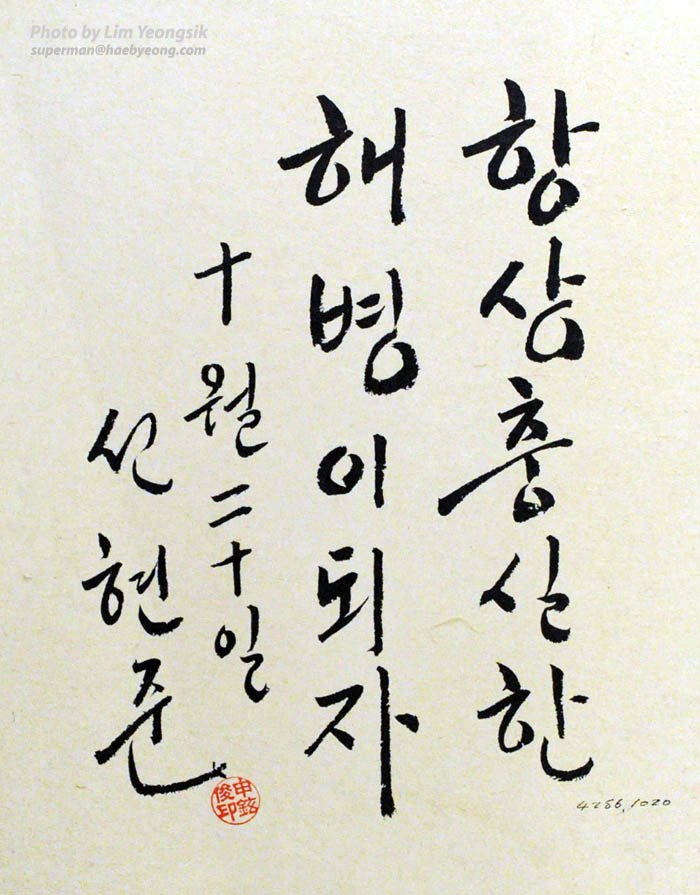 Photo by Lim Yeongsik
superman@haebyeong.com
항상충실한
해병이되자
十월二十일
신현준
申鉉俊印
4286.1020